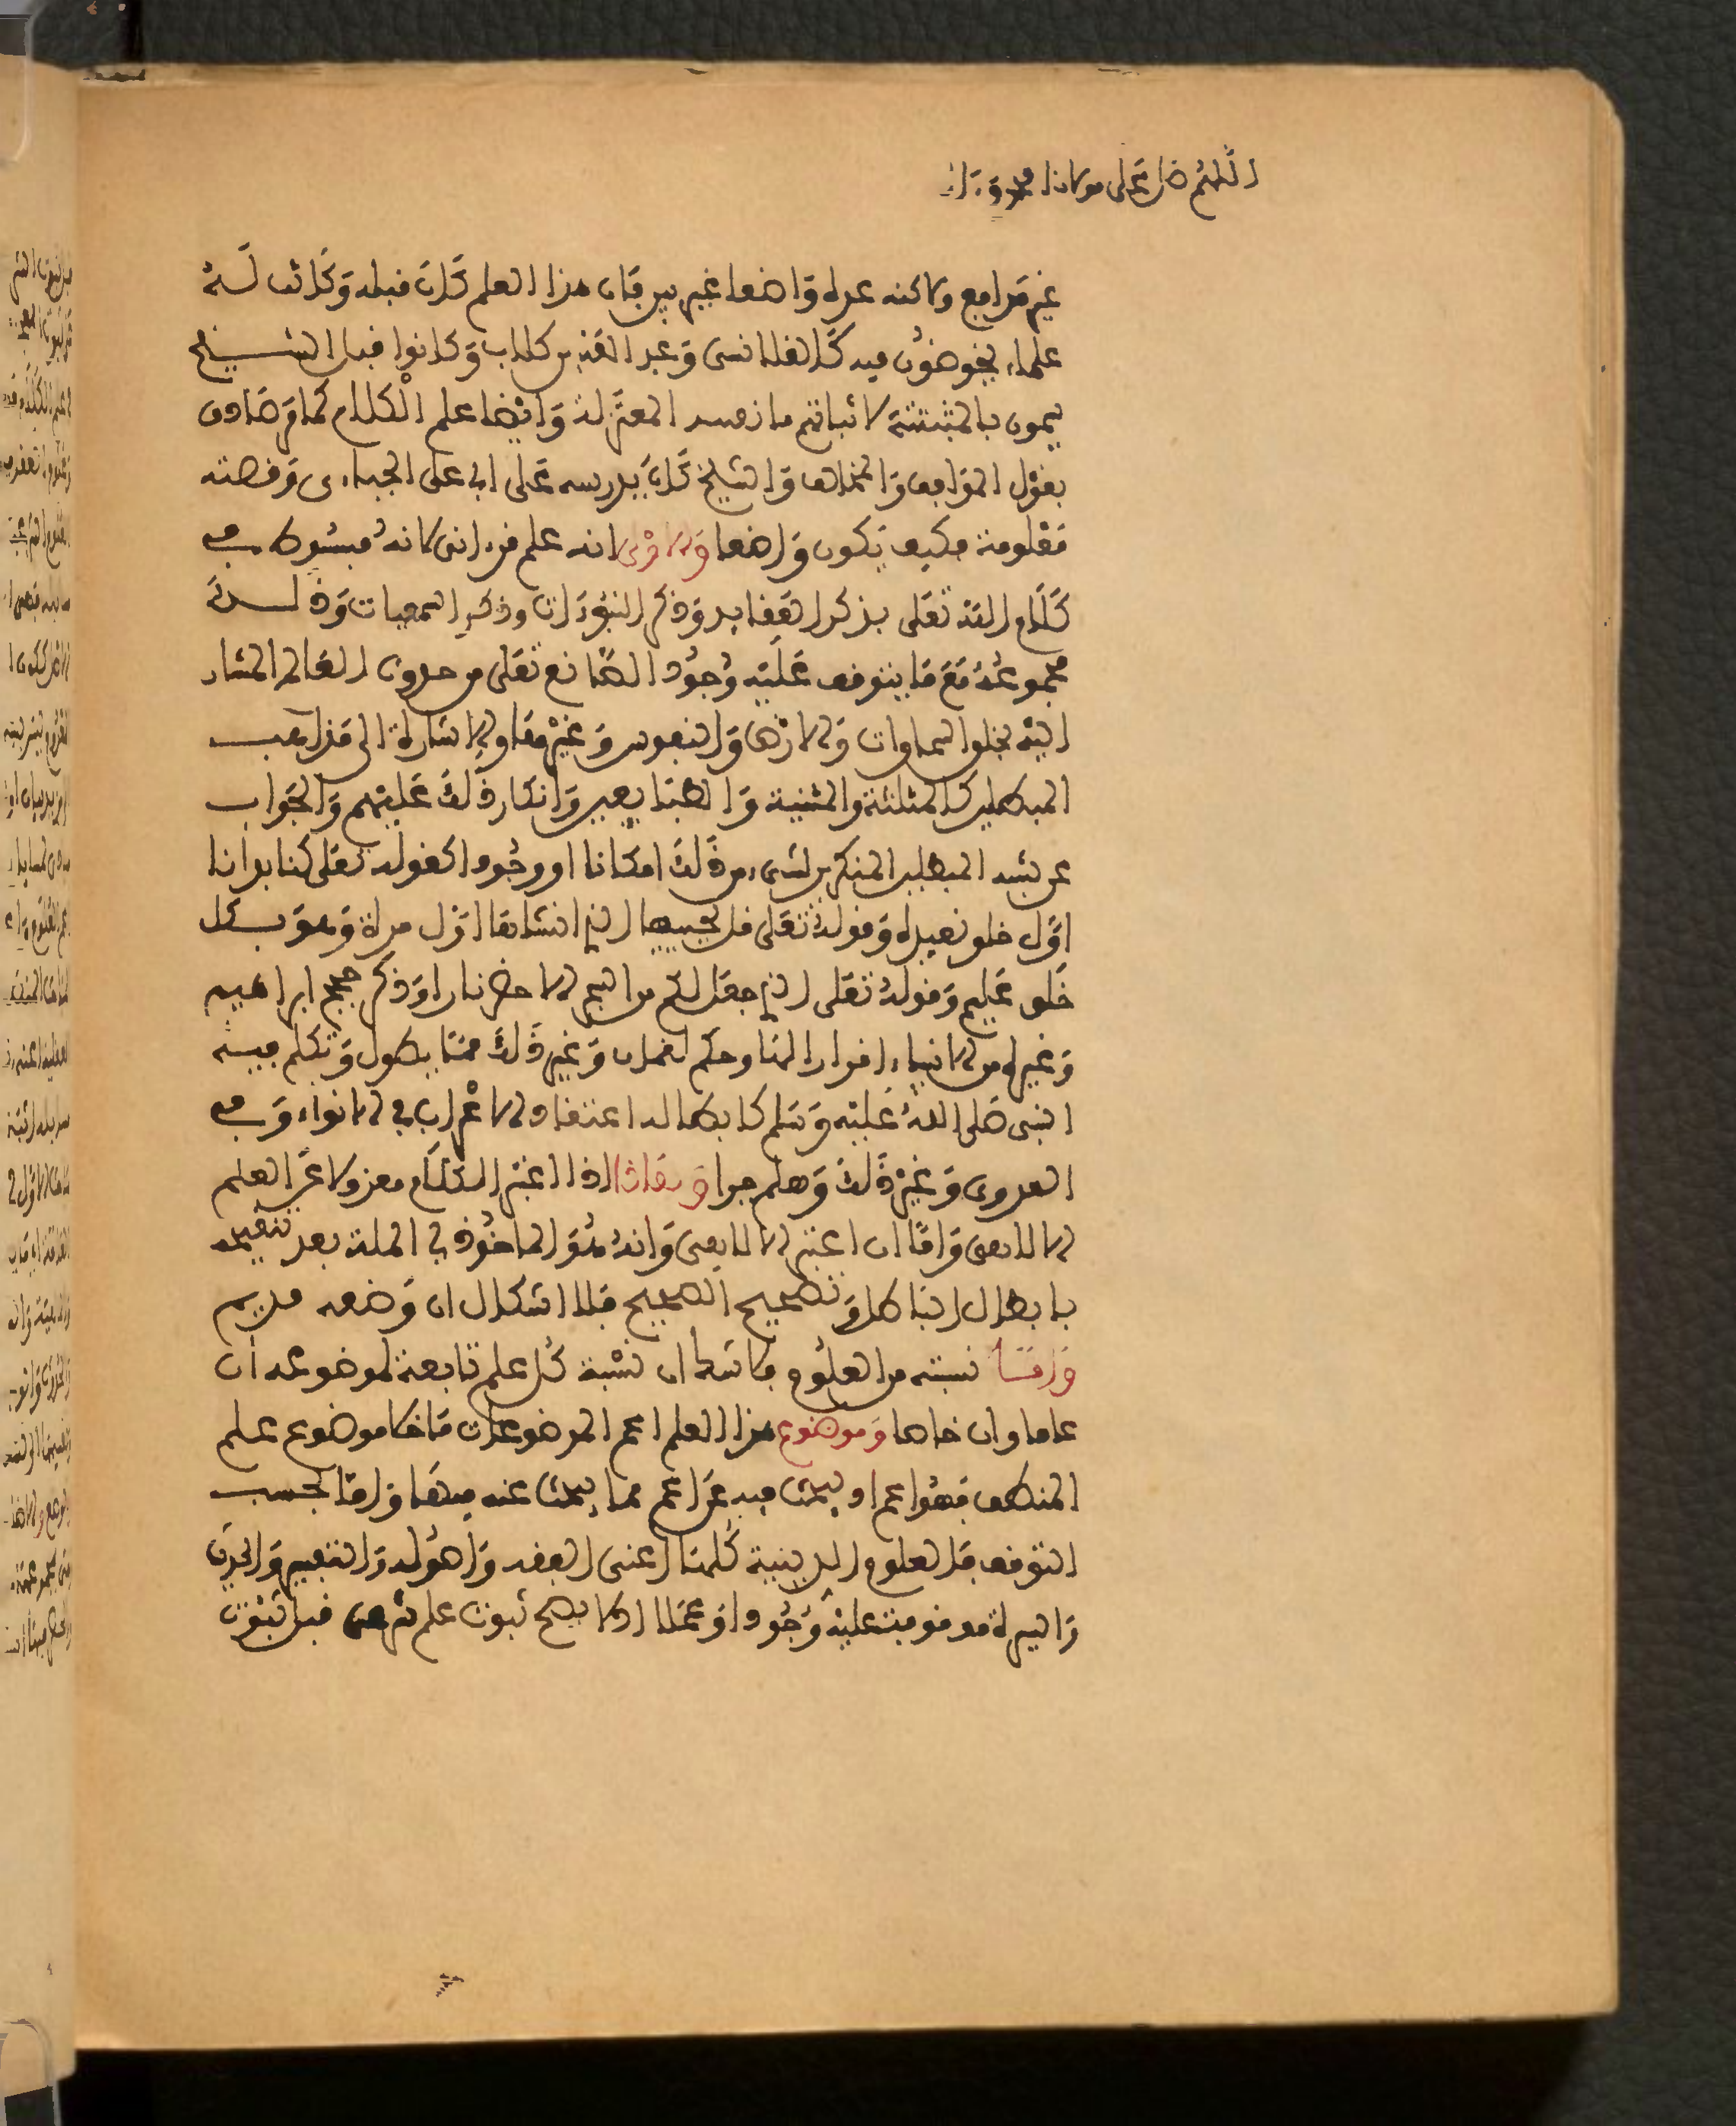 اللهم صل على مولانا محمد وءاله
غير مدافع ولاكنه عده واضعا غير بين فإن هذا العلم كان قبله وكانت له
علماء يخوضون فيه كالقلانسي وعبد الله بن كلاب وكانوا قبل الشيخ
يسمون بالمثبتة لاثباتهم ما نفته المعتزلة وايضا علم الكلام كما مر صادق
بقول الموافق والمخالف والشيخ كان يدرسه على ابي علي الجبائي وقصته
معلومة فكيف يكون واضعا والاولى انه علم قرءاني لانه مبسوط في
كلام الله تعلى بذكر العقايد وذكر النبوءات وذكر السمعيات وذلك
مجموعه مع ما يتوقف عليه وجود الصانع تعلى من حدوث العالم المشار
اليه بخلق السماوات والارض والنفوس وغيرها والاشارة الى مذاهب
المبطلين كالمثلثة والمثنية والطبايعيين وانكار ذلك عليهم والجواب
عن شبه المبطلين المنكرين لشيء من ذلك امكانا او وجودا كقوله تعلى كما بدأنا
اول خلق نعيده وقوله تعلى قل يحييها الذي انشأها اول مرة وهو بكل
خلق عليم وقوله تعلى الذي جعل لكم من الشجر الاخضر نارا وذكر حجج ابراهيم
وغيره من الانبياء وحكم لقمان وغير ذلك مما يطول وتكلم فيه
النبي صلى الله عليه وسلم كابطاله اعتقاد الاعراب في الانواء وفي
العدوى وغير ذلك وهلم جرا اذا اعتبر الكلام معزولا عن العلم
الالاهي واما ان اعتبر الالاهي وانه هو الماخوذ في الملة بعد تنقيحه
بابطال الباطل وتصحيح الصحيح فلا اشكال ان وضعه قديم
واما نسبته من العلوم فاعلم ان نسبة كل علم تابعة لموضوعه ان
عاما وان خاصا وموضوع هذا العلم اعم الموضوعات ما خلا موضوع علم
المنطق فهو اعم او يبحث فيه عن اعم مما يبحث عنه فيها واما بحسب
التوقف فالعلوم الدينية كلها اعني الفقه واصوله والتفسير والحديث
والسيرة موقوفة عليه وجودا وعملا اذ لا يصح ثبوت علم شرعي قبل ثبوت